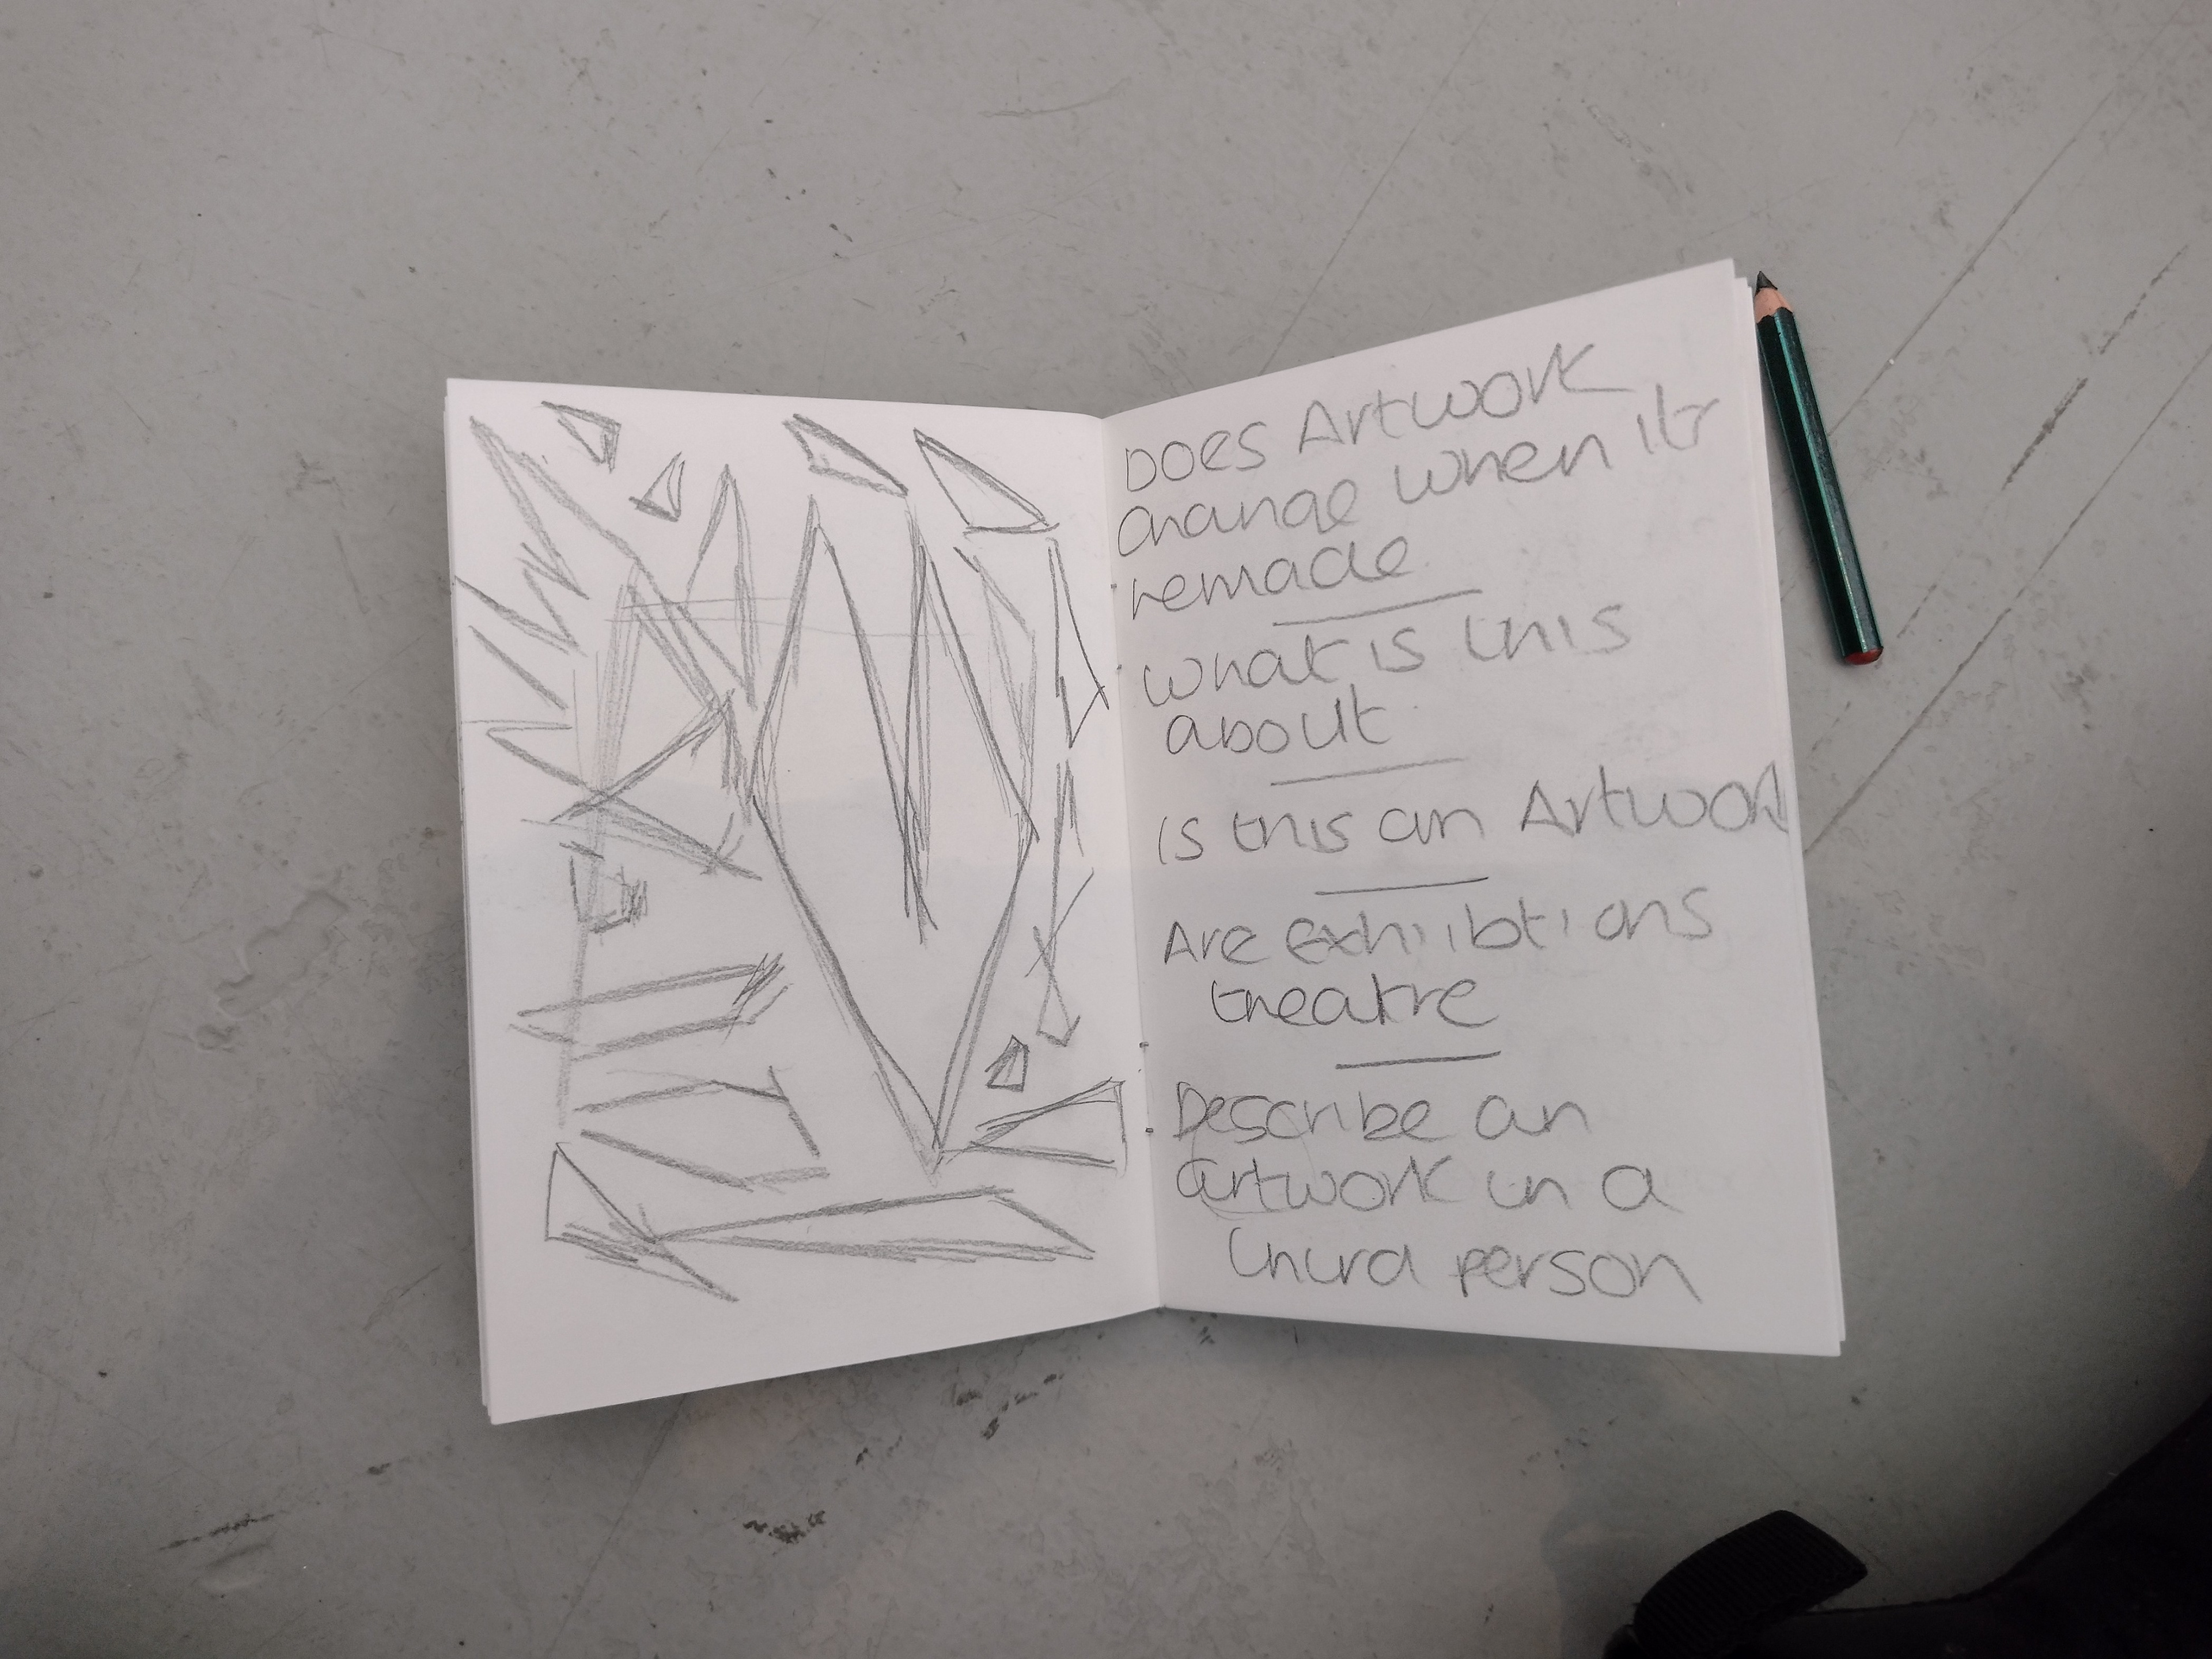 Does Artwork
change when its
remade
what is this
about
is this an Artwork
Are exhiibtions
theatre
Describe an
artwork in a
third person